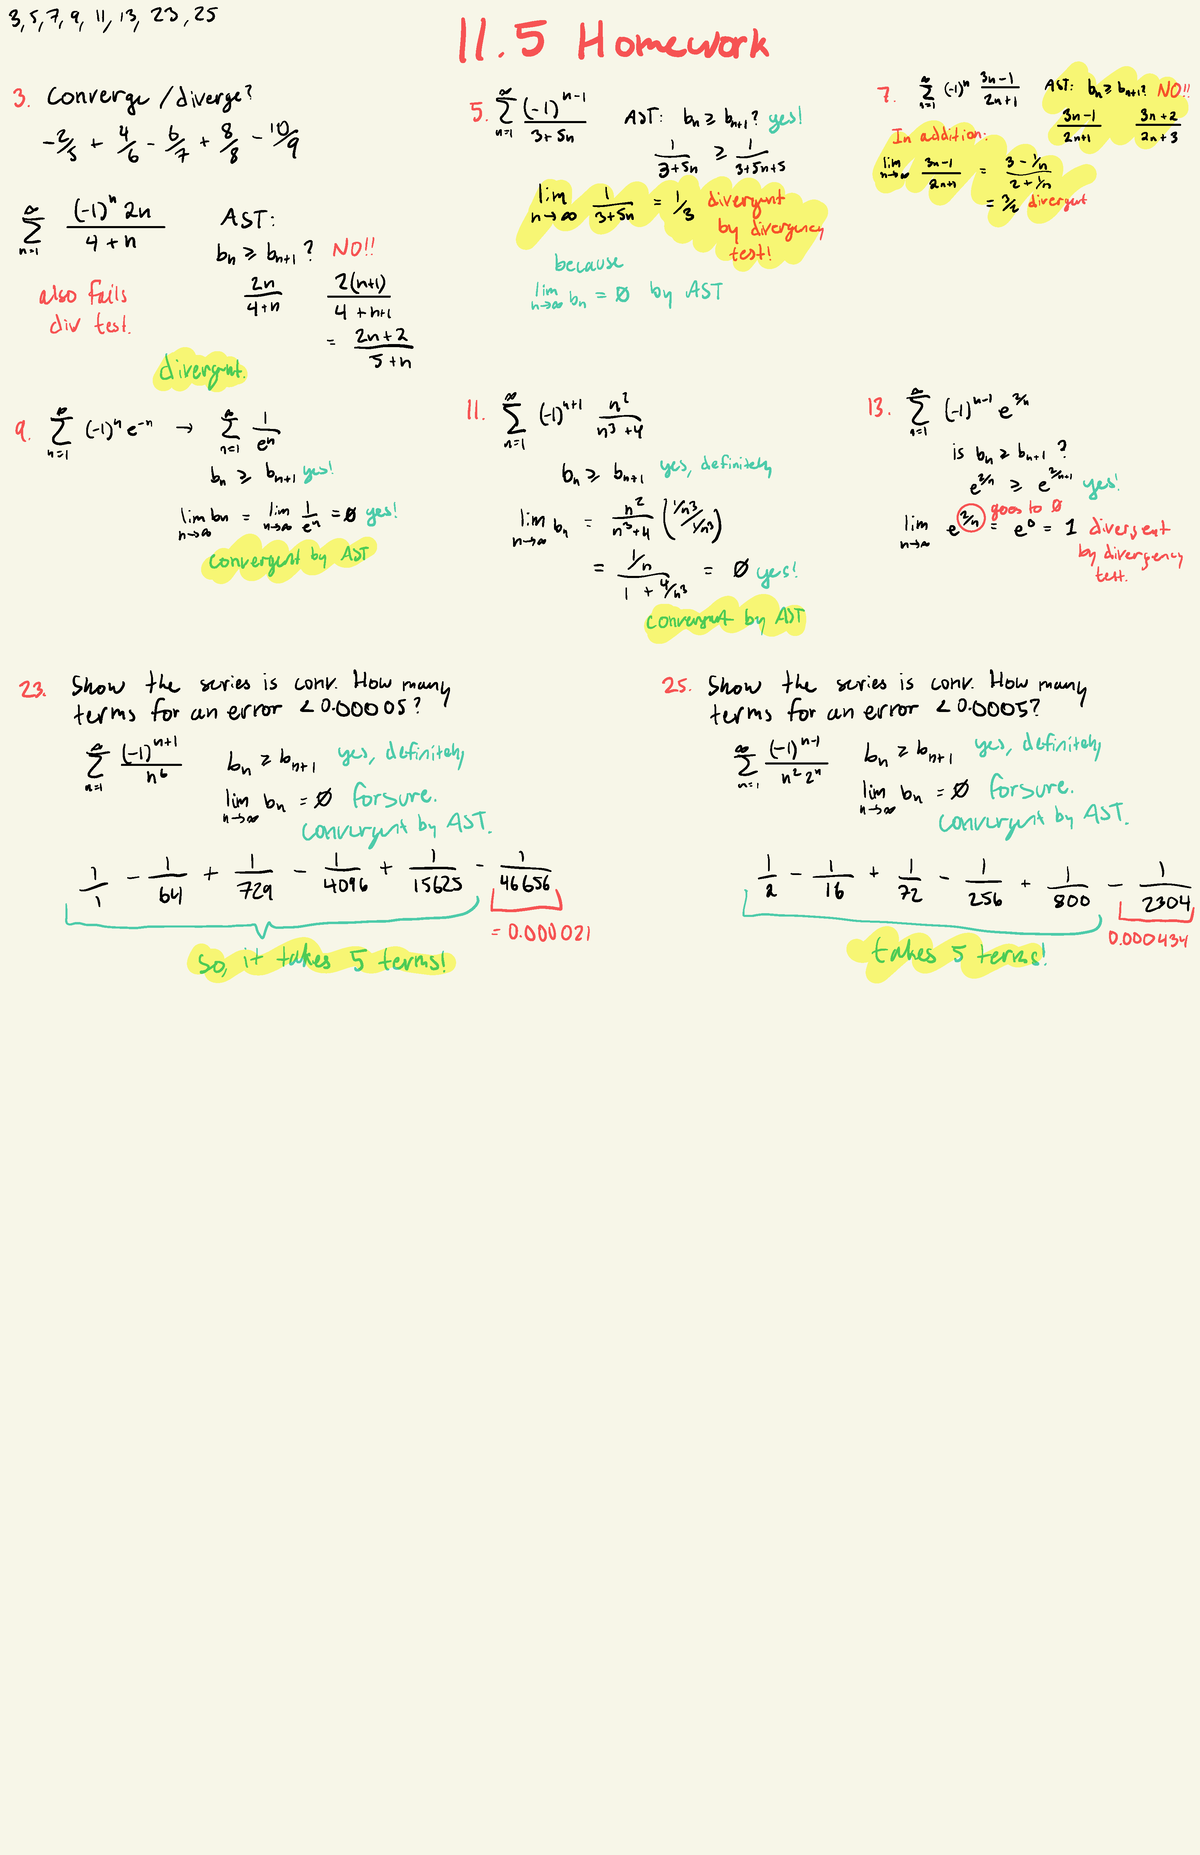 3, 5, 7, 9, 11, 13, 23, 25
11.5 Homework
3. Converge / diverge?
-2/5 + 4/6 - 6/7 + 8/8 - 10/9
∞ Σ n=1 (-1)^n 2n / 4+n
AST:
bn ≥ bn+1? NO!!
2n / 4+n    2(n+1) / 4+n+1
= 2n+2 / 5+n
also fails
div test.
divergent.
5. ∞ Σ n=1 (-1)^n-1 / 3+5n    AST: bn ≥ bn+1? yes!
1 / 3+5n ≥ 1 / 3+5n+5
lim n→∞ 1 / 3+5n = 1/3 divergent
by divergency
test!
because
lim n→∞ bn = Ø by AST
7. ∞ Σ n=1 (-1)^n 3n-1 / 2n+1    AST: bn ≥ bn+1? NO!!
3n-1 / 2n+1    3n+2 / 2n+3
In addition:
lim n→∞ 3n-1 / 2n+n = 3-1/n / 2+1/n
= 3/2 divergent
9. ∞ Σ n=1 (-1)^n e^-n → ∞ Σ n=1 1 / e^n
bn ≥ bn+1 yes!
lim n→∞ bn = lim n→∞ 1 / e^n = Ø yes!
convergent by AST
11. ∞ Σ n=1 (-1)^n+1 n^2 / n^3+4
bn ≥ bn+1 yes, definitely
lim n→∞ bn = n^2 / n^3+4 (1/n^3 / 1/n^3)
= 1/n / 1 + 4/n^3 = Ø yes!
convergent by AST
13. ∞ Σ n=1 (-1)^n-1 e^2/n
is bn ≥ bn+1?
e^2/n ≥ e^2/n+1 yes!
goes to Ø
lim n→∞ e^2/n = e^0 = 1 divergent
by divergency
test.
23. Show the series is conv. How many
terms for an error < 0.00005?
∞ Σ n=1 (-1)^n+1 / n^6    bn ≥ bn+1 yes, definitely
lim n→∞ bn = Ø forsure.
convergent by AST.
1/1 - 1/64 + 1/729 - 1/4096 + 1/15625 - 1/46656
= 0.000021
so, it takes 5 terms!
25. Show the series is conv. How many
terms for an error < 0.0005?
∞ Σ n=1 (-1)^n-1 / n^2 2^n    bn ≥ bn+1 yes, definitely
lim n→∞ bn = Ø forsure.
convergent by AST.
1/2 - 1/16 + 1/72 - 1/256 + 1/800 - 1/2304
0.000434
takes 5 terms!